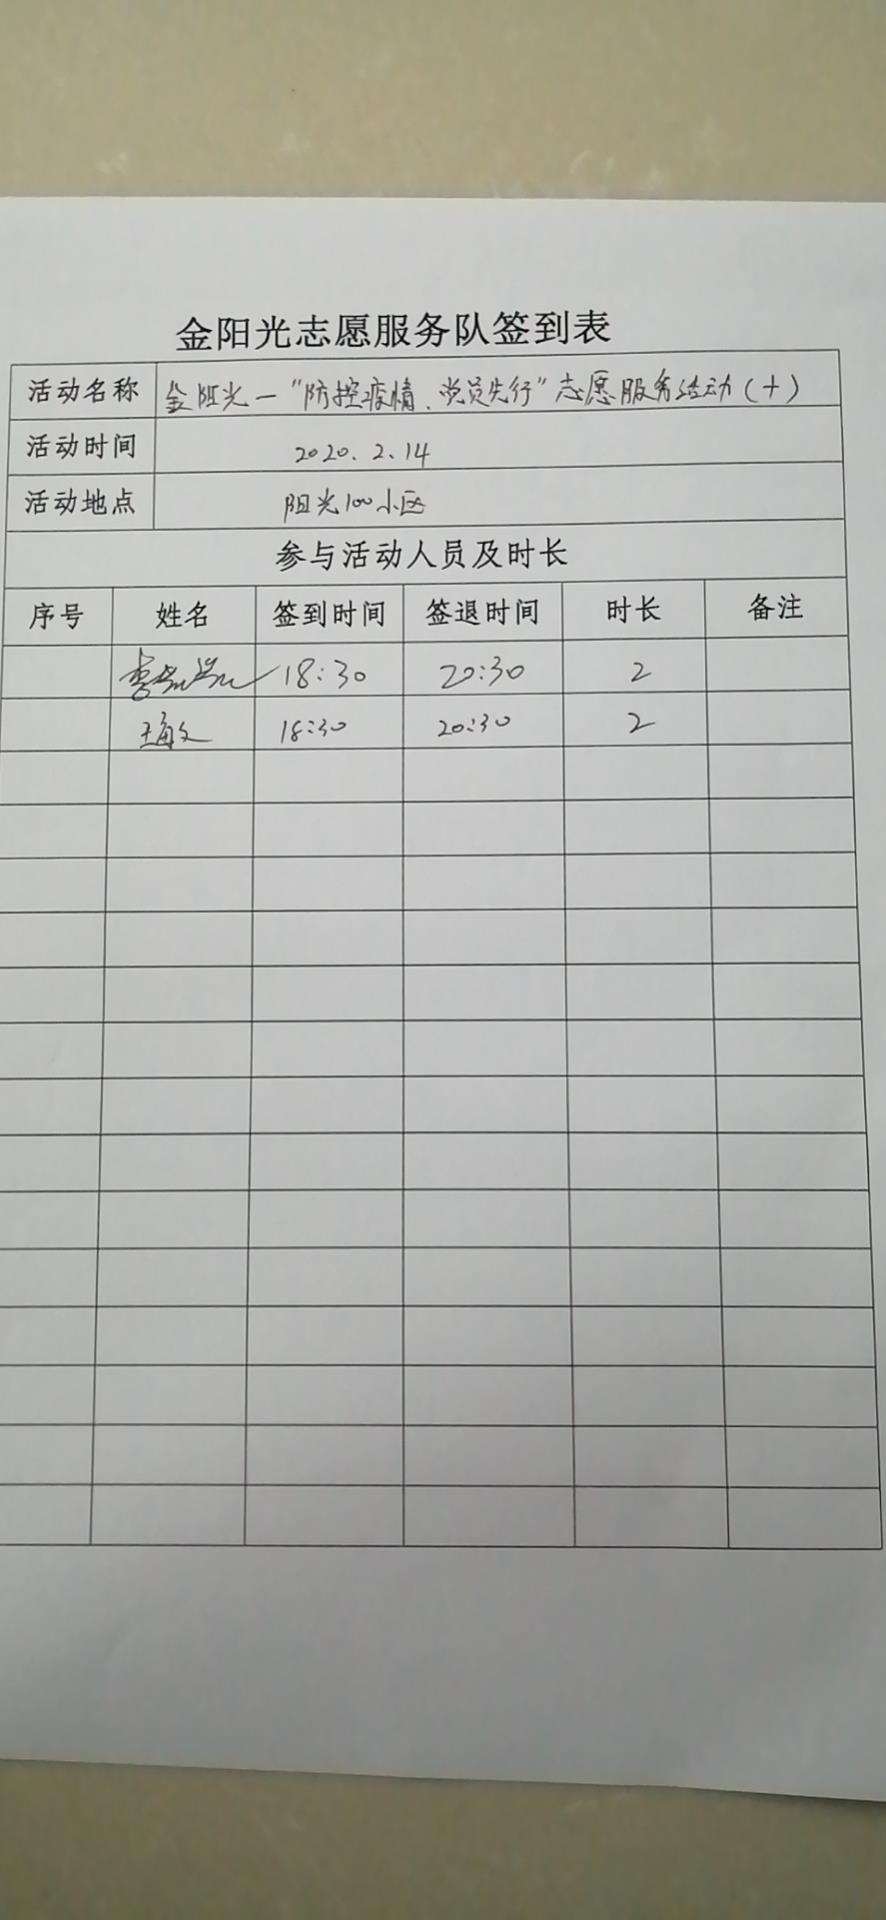 金阳光志愿服务队签到表
活动名称 金阳光一"防控疫情、党员先行"志愿服务活动(十)
活动时间 2020.2.14
活动地点 阳光100小区
参与活动人员及时长
序号 姓名 签到时间 签退时间 时长 备注
18:30 20:30 2
王海文 18:30 20:30 2